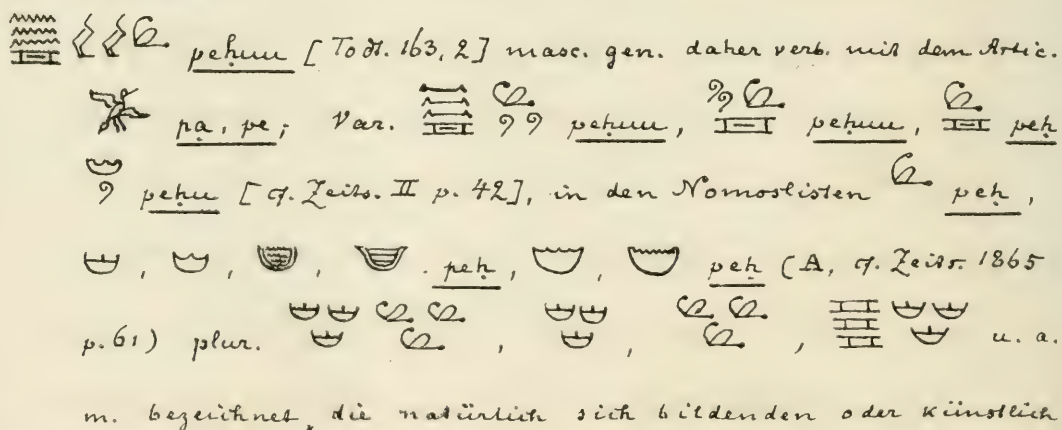 peḥuu [Todt. 163, 2] masc. gen. daher verb. mit dem Artic.
pa, pe; Var. peḥuu, peḥuu, peḥ
peḥu [cf. Zeits. II p. 42], in den Nomoslisten peḥ,
, , , . peḥ, , peḥ (A, cf. Zeits. 1865
p. 61) plur. , , , u. a.
m. bezeichnet die natürlich sich bildenden oder künstlich